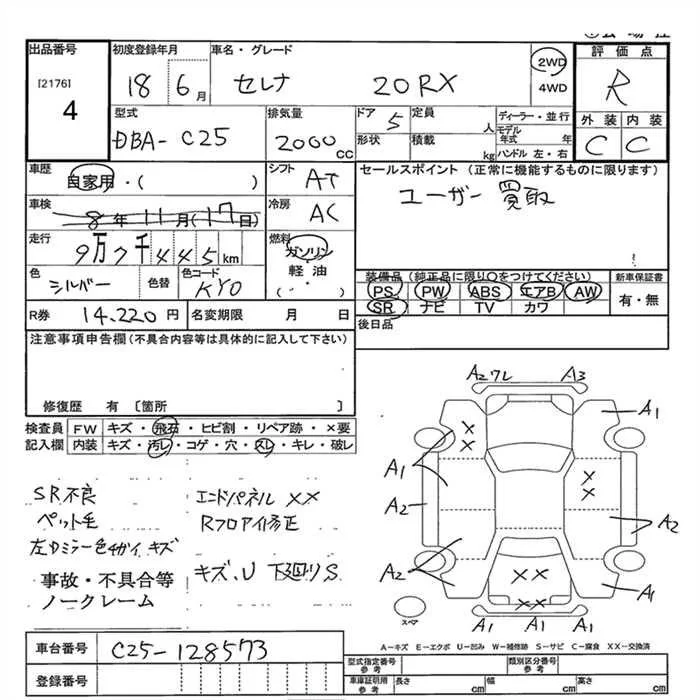 出品番号 初度登録年月 車名・グレード 評価点
[2176] 4 18 6月 セレナ 20RX 2WD 4WD R
型式 排気量 ドア 5 定員 人 ディーラー・並行 外装 内装
DBA-C25 2000cc 形状 積載 kg モデル年式 年 ハンドル 左・右 C C
車歴 シフト セールスポイント (正常に機能するものに限ります)
自家用・( ) AT ユーザー買取
車検 8年11月(17日) 冷房 AC
走行 9万7千445km 燃料 ガソリン 軽油 ( ・ )
色 シルバー 色替 色コード KY0
装備品 (純正品に限り○をつけてください) 新車保証書
PS PW ABS エアB AW 有・無
SR ナビ TV カワ
R券 14.220円 名変期限 月 日 後日品
注意事項申告欄(不具合内容等は具体的に記入して下さい)
修復歴 有 〔箇所 〕
検査員 FW キズ・飛石・ヒビ割・リペア跡・×要
記入欄 内装 キズ・汚レ・コゲ・穴・スレ・キレ・破レ
SR不良 エンドパネル ××
ペット毛 Rフロアイ修正
左Dミラー色
キズ
事故・不具合等 キズ、U 下廻りS
ノークレーム
A2ワレ A3
A1
××
A1 ××
A2 A2
A2 ××
A1
××
スペア A1 A1 A1
A-キズ E-エクボ U-凹み W-補修跡 S-サビ C-腐食 XX-交換済
車台番号 C25-128573
登録番号
型式指定番号 参考 類別区分番号 参考
車庫証明用 参考 長さ cm 幅 cm 高さ cm